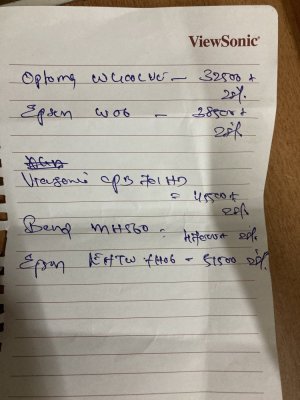 ViewSonic
Optoma W400LVe - 32500 +
28%
Epson W06 - 38500 +
28%
Viewsonic CPB 701 HD
= 45500 +
28%
Benq MH560 = 47000 + 28%
Epson EHTW FH06 - 51500 28%